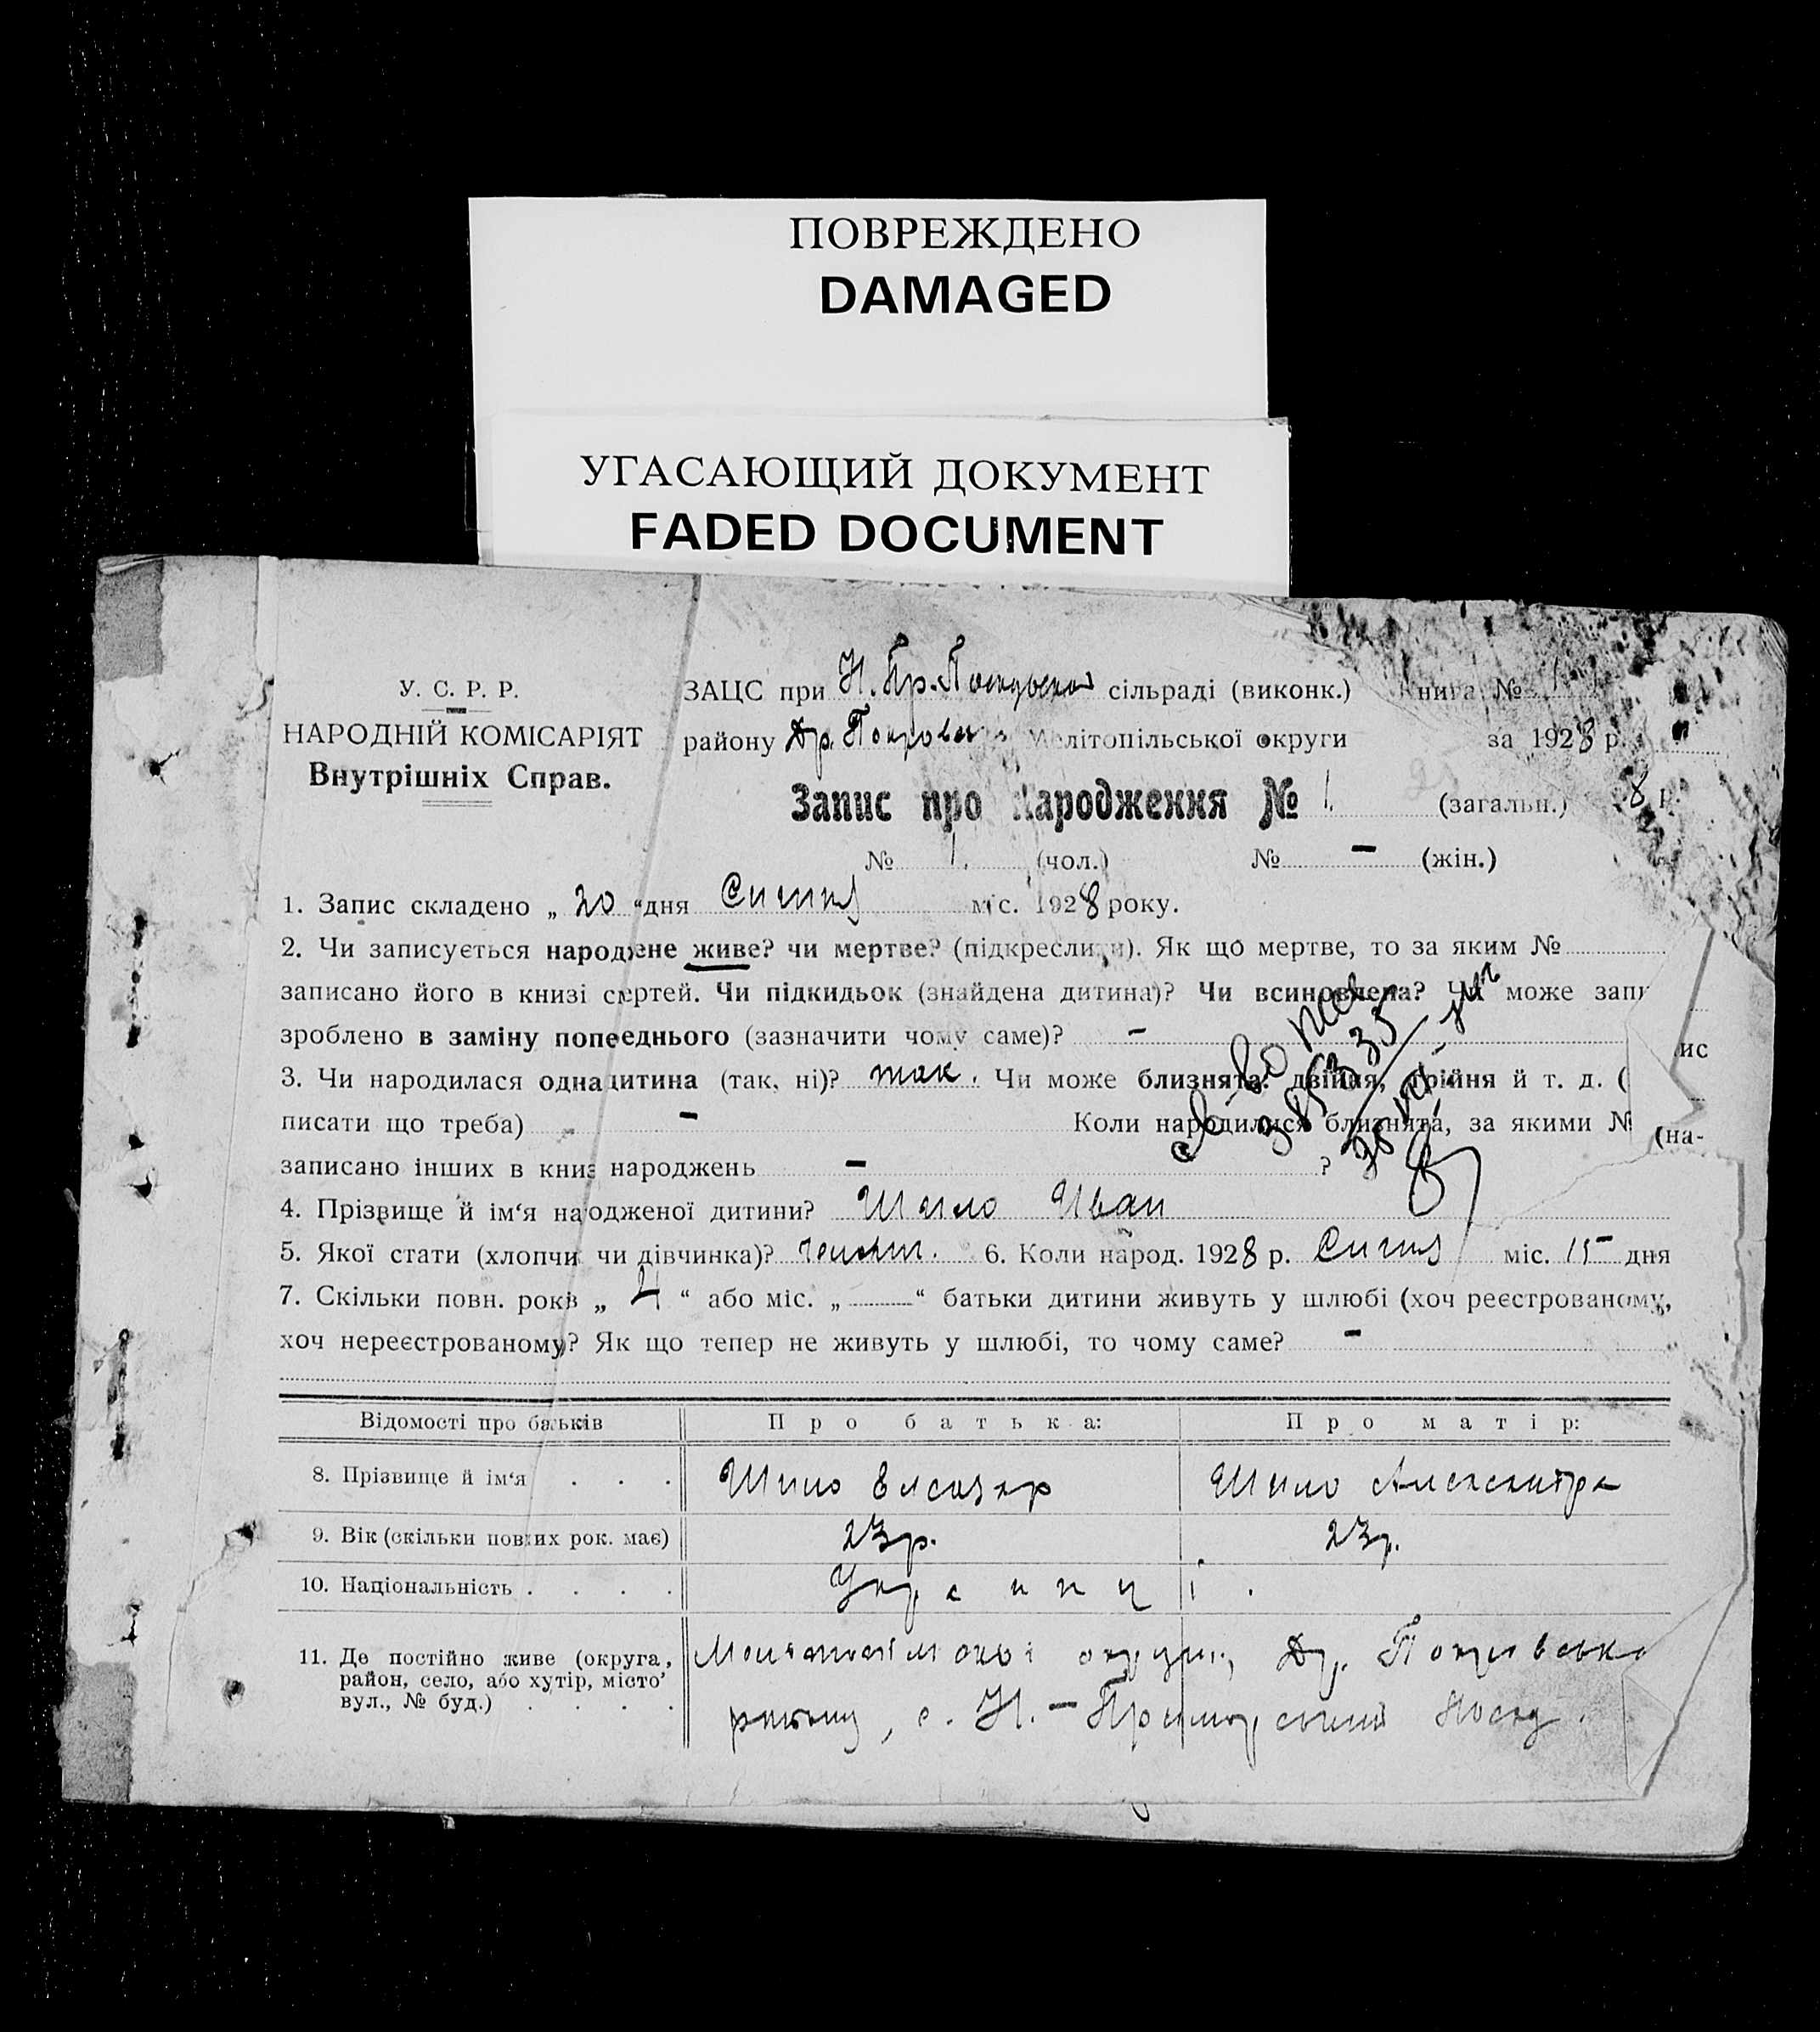 ПОВРЕЖДЕНО
DAMAGED
УГАСАЮЩИЙ ДОКУМЕНТ
FADED DOCUMENT
У. С. Р. Р.
НАРОДНІЙ КОМІСАРІЯТ
Внутрішніх Справ.
ЗАЦС при Н. Пр. сільраді (виконк.) Книга № 1
району Др. Покровськ Мелітопільської округи за 1928 р.
Запис про народження № 1. (загальн.) 8 р.
№ 1. (чол.) № — (жін.)
1. Запис складено „ 20 “ дня Січня міс. 1928 року.
2. Чи записується народжене живе? чи мертве? (підкреслити). Як що мертве, то за яким №
записано його в книзі смертей. Чи підкидьок (знайдена дитина)? Чи всиновлена? Чи може запис
зроблено в заміну попееднього (зазначити чому саме)? —
3. Чи народилася одна дитина (так, ні)? так. Чи може близнята: двійня, трійня й т. д. (на-
писати що треба) — Коли народилися близнята, за якими №
записано інших в книз народжень — ?
4. Прізвище й ім‘я народженої дитини? Шило Иван
5. Якої стати (хлопчик чи дівчинка)? 6. Коли народ. 1928 р. Січня міс. 15 дня
7. Скільки повн. років „ 4 “ або міс. „ — “ батьки дитини живуть у шлюбі (хоч реєстрованому,
хоч нереєстрованому? Як що тепер не живуть у шлюбі, то чому саме? —
Відомості про батьків Про батька: Про матір:
8. Прізвище й ім‘я . . . Шило Елеазар Шило Александра
9. Вік (скільки повних рок. має) 23 р. 23 р.
10. Національність . . . . Українці.
11. Де постійно живе (округа, район, село, або хутір, місто’ вул., № буд.) . . . .
Мелітопільської округи, Др. Покровсько
району, с. Н.-Приморський Посад.